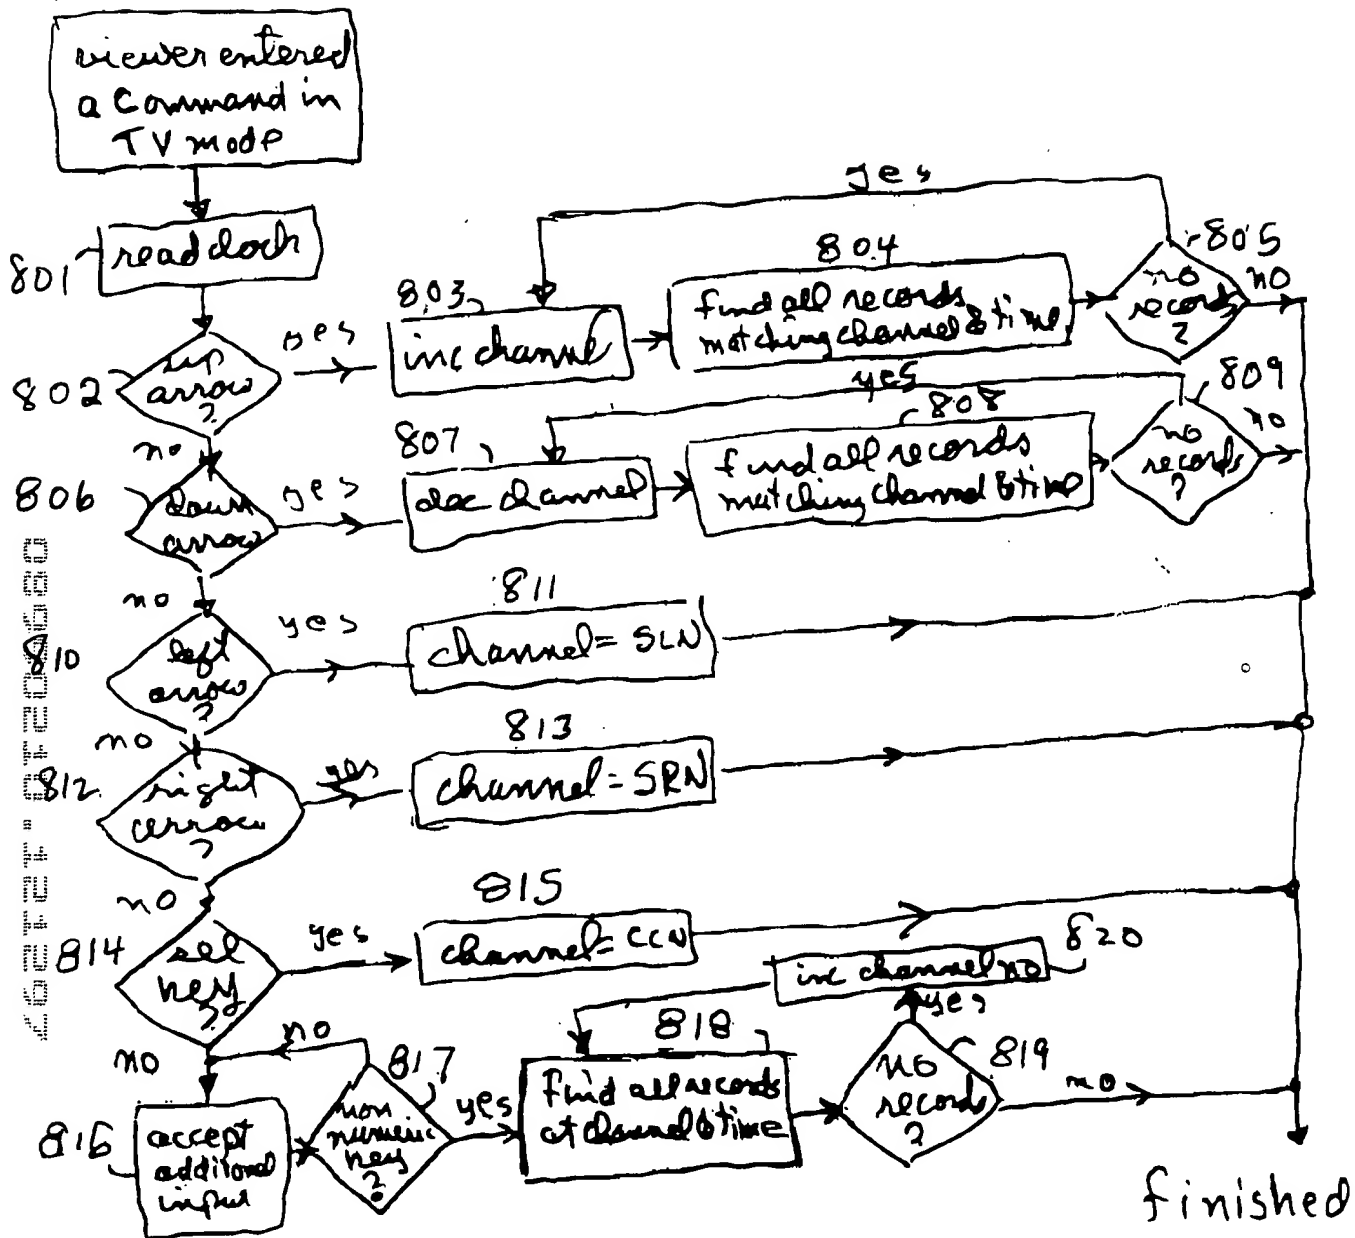 viewer entered
a Command in
TV mode
801
read clock
802
up
arrow
?
yes
803
inc channel
804
find all records
matching channel & time
805
no
records
?
yes
no
no
806
down
arrow
yes
807
dec channel
808
find all records
matching channel & time
809
no
records
?
yes
no
no
810
left
arrow
?
yes
811
channel = SLN
no
812
right
arrow
?
yes
813
channel = SRN
no
814
sel
key
?
yes
815
channel = CCN
no
816
accept
additional
input
817
non
numeric
key
?
no
yes
818
find all records
at channel & time
819
no
records
?
yes
820
inc channel no
no
finished